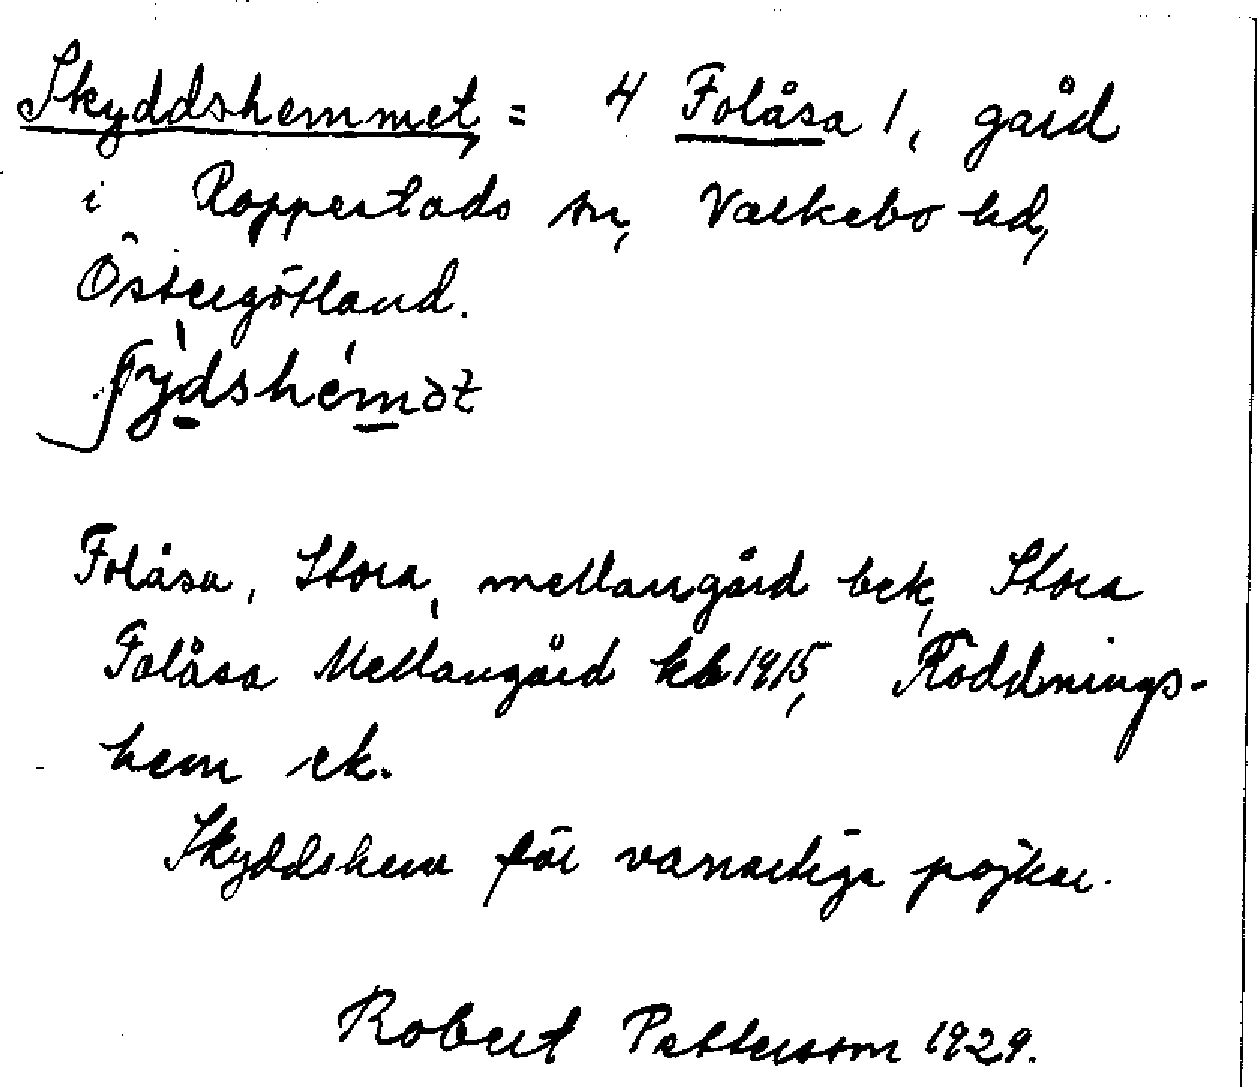 Skyddshemmet, = 4 Folåsa 1, gård
i Rappestads sn, Valkebo hd,
Östergötland.
ʃỳdshémət
Folåsa, Stora, mellangård bek, Stora
Folåsa Mellangård kb 1915, Räddnings-
hem ek.
Skyddshem för vanartiga pojkar.
Robert Pettersson 1929.